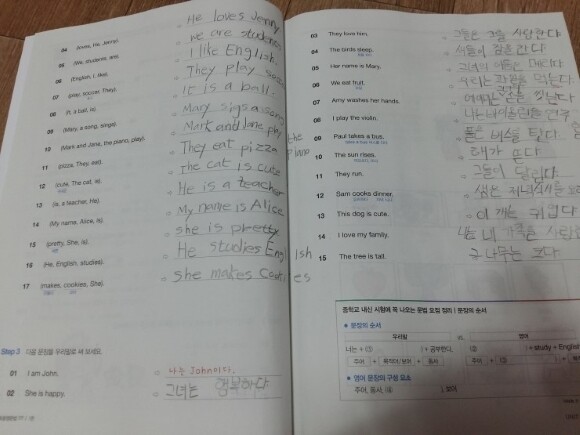 04 (loves, He, Jenny). He loves Jenny
05 (We, students, are). we are students
06 (English, I, like). I like English.
07 (play, soccer, They). They play
08 (It, a ball, is). It is a ball.
09 (Mary, a song, sings). Mary sigs a song
10 (Mark and Jane, the piano, play). Mark and Jane play the piano
11 (pizza, They, eat). They eat pizza
12 (cute, The cat, is). The cat is cute
13 (is, a teacher, He). He is a teacher
14 (My name, Alice, is). My name is Alice
15 (pretty, She, is). she is pretty
16 (He, English, studies). He studies English
17 (makes, cookies, She). she makes cookies
Step 3 다음 문장을 우리말로 써 보세요.
01 I am John. 나는 John이다.
02 She is happy. 그녀는 행복하다
03 They love him. 그들은 그를 사랑한다
04 The birds sleep. 새들이 잠을 잔다
05 Her name is Mary. 그녀의 이름은 메리다
06 We eat fruit. 우리는 과일을 먹는다
07 Amy washes her hands. 손을 씻는다
08 I play the violin. 나는 바이올린을 연주
09 Paul takes a bus. 폴은 버스를 탄다.
10 The sun rises. 해가 뜬다
11 They run. 그들이 달린다
12 Sam cooks dinner. 샘은 저녁식사를
13 This dog is cute. 이 개는 귀엽다
14 I love my family. 나는 내 가족을 사랑
15 The tree is tall. 그 나무는 크다
중학교 내신 시험에 꼭 나오는 문법 요점 정리 | 문장의 순서
문장의 순서
우리말 vs. 영어
너는 + ① + 공부한다. ② + study + English
주어 + 목적어/보어 + 동사 주어 + ③
영어 문장의 구성 요소
주어, 동사, ④, 보어